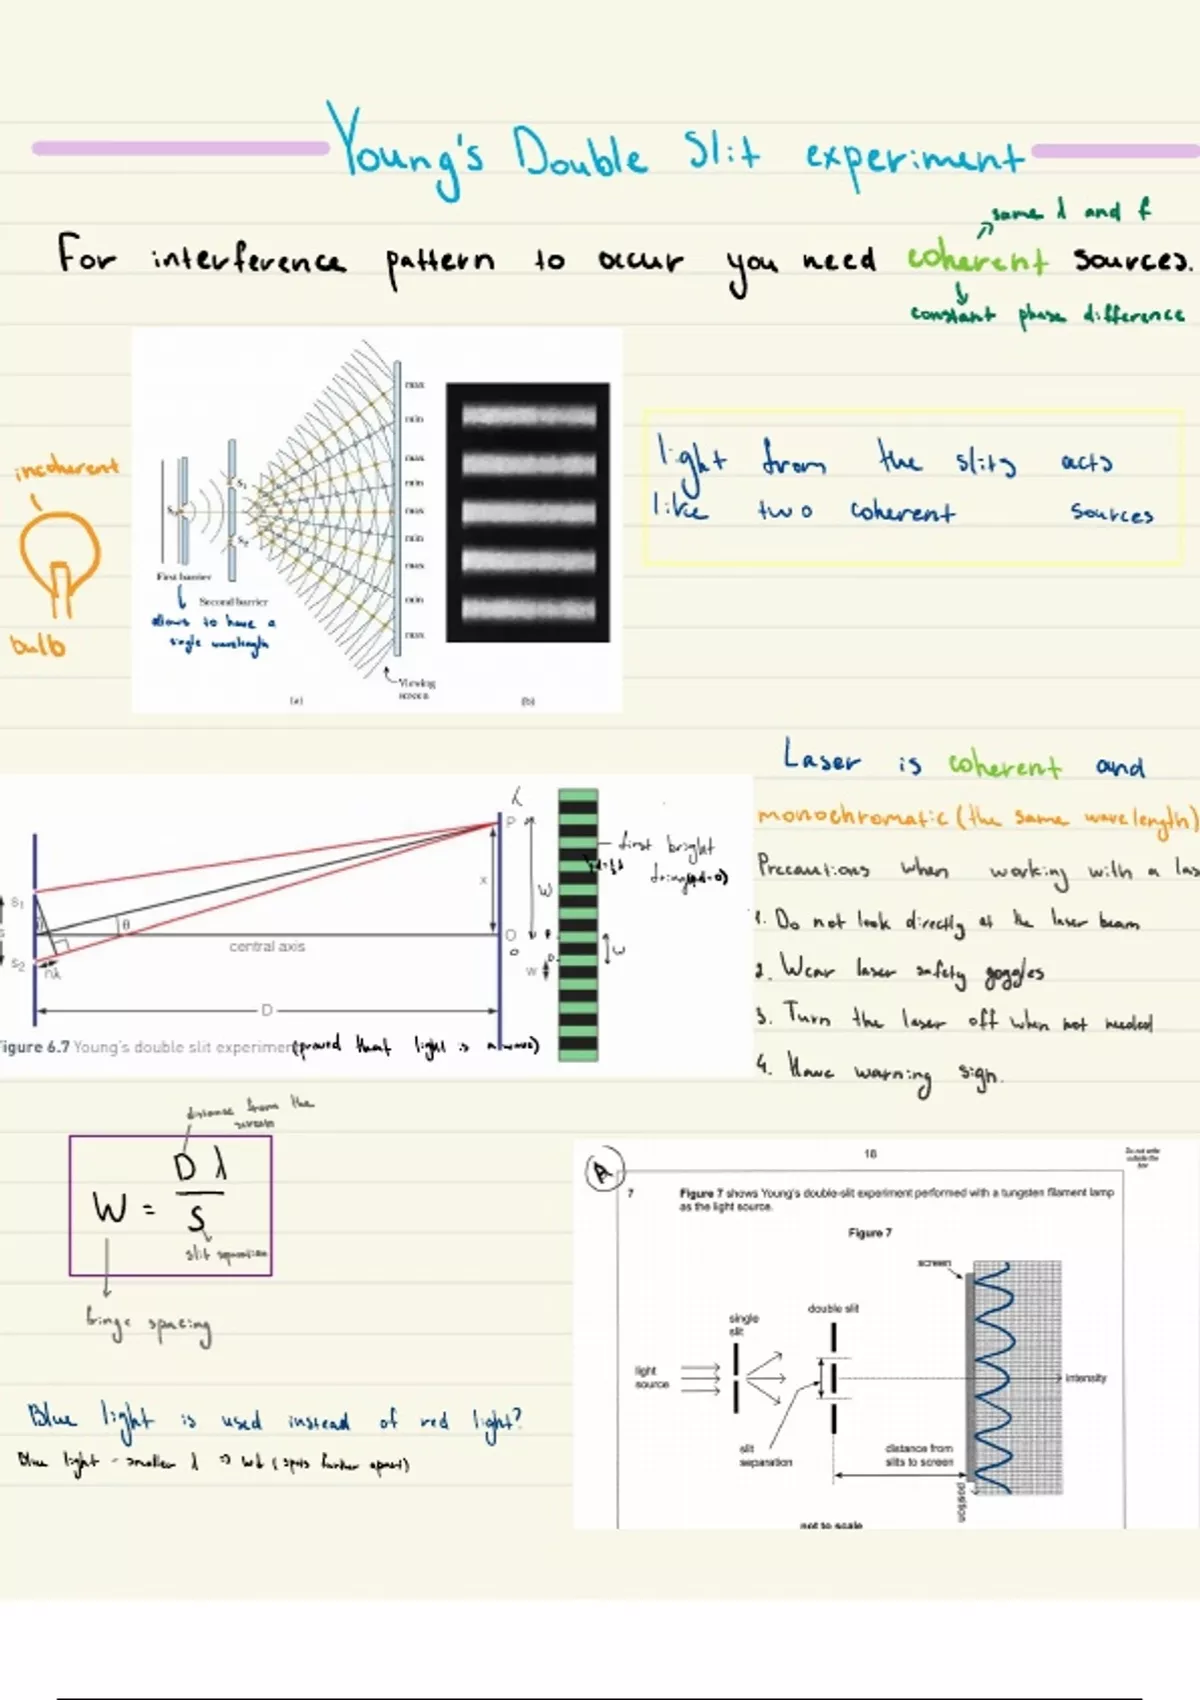 Young's Double Slit experiment
same λ and f
For interference pattern to occur you need coherent sources.
constant phase difference
incoherent
bulb
max
min
max
min
max
min
max
min
max
S₁
S₂
First barrier
Second barrier
allows to have a
single wavelength
Viewing
screen
(a)
(b)
light from the slits acts
like two coherent sources
Laser is coherent and
monochromatic (the same wavelength)
Precautions when working with a las
1. Do not look directly at the laser beam
2. Wear laser safety goggles
3. Turn the laser off when not needed
4. Have warning sign.
P
first bright
x
W
S₁
θ
central axis
O
S₂
nλ
w
D
igure 6.7 Young's double slit experiment (proved that light is a wave)
distance from the
screen
W = Dλ / S
slit separation
fringe spacing
Blue light is used instead of red light?
Blue light - smaller λ
A
18
Do not write
outside the
box
7 Figure 7 shows Young's double-slit experiment performed with a tungsten filament lamp
as the light source.
Figure 7
screen
double slit
single
slit
light
source
intensity
slit
separation
distance from
slits to screen
position
not to scale